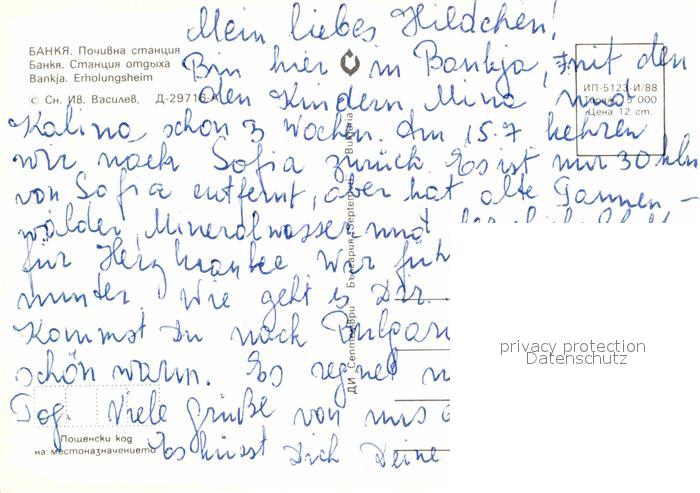 Mein liebes Hildchen!
БАНКЯ. Почивна станция
Банкя. Станция отдыха
Bankja. Erholungsheim
© Сн. Ив. Василев, Д-29716-А
ИП-5123-И/88
Тираж 15 000
Цена 12 ст.
Bin hier in Bankja, mit den
den Kindern Mina und
Kalina schon 3 Wochen. Am 15.7 kehren
wir nach Sofia zurück. Es ist nur 30 klm
von Sofia entfernt, aber hat alte Tannen-
wälder, Mineralwasser und
für Herzkranke Wir füh
munter. Wie geht es Dir.
Kommst Du nach Bulgar
schön warm. Es regnet
Tag. Viele Grüße von uns
Es küsst Dich Deine
ДИ „Септември“ България „Septemvri“ Bulgaria
Пощенски код
на местоназначението
privacy protection
Datenschutz